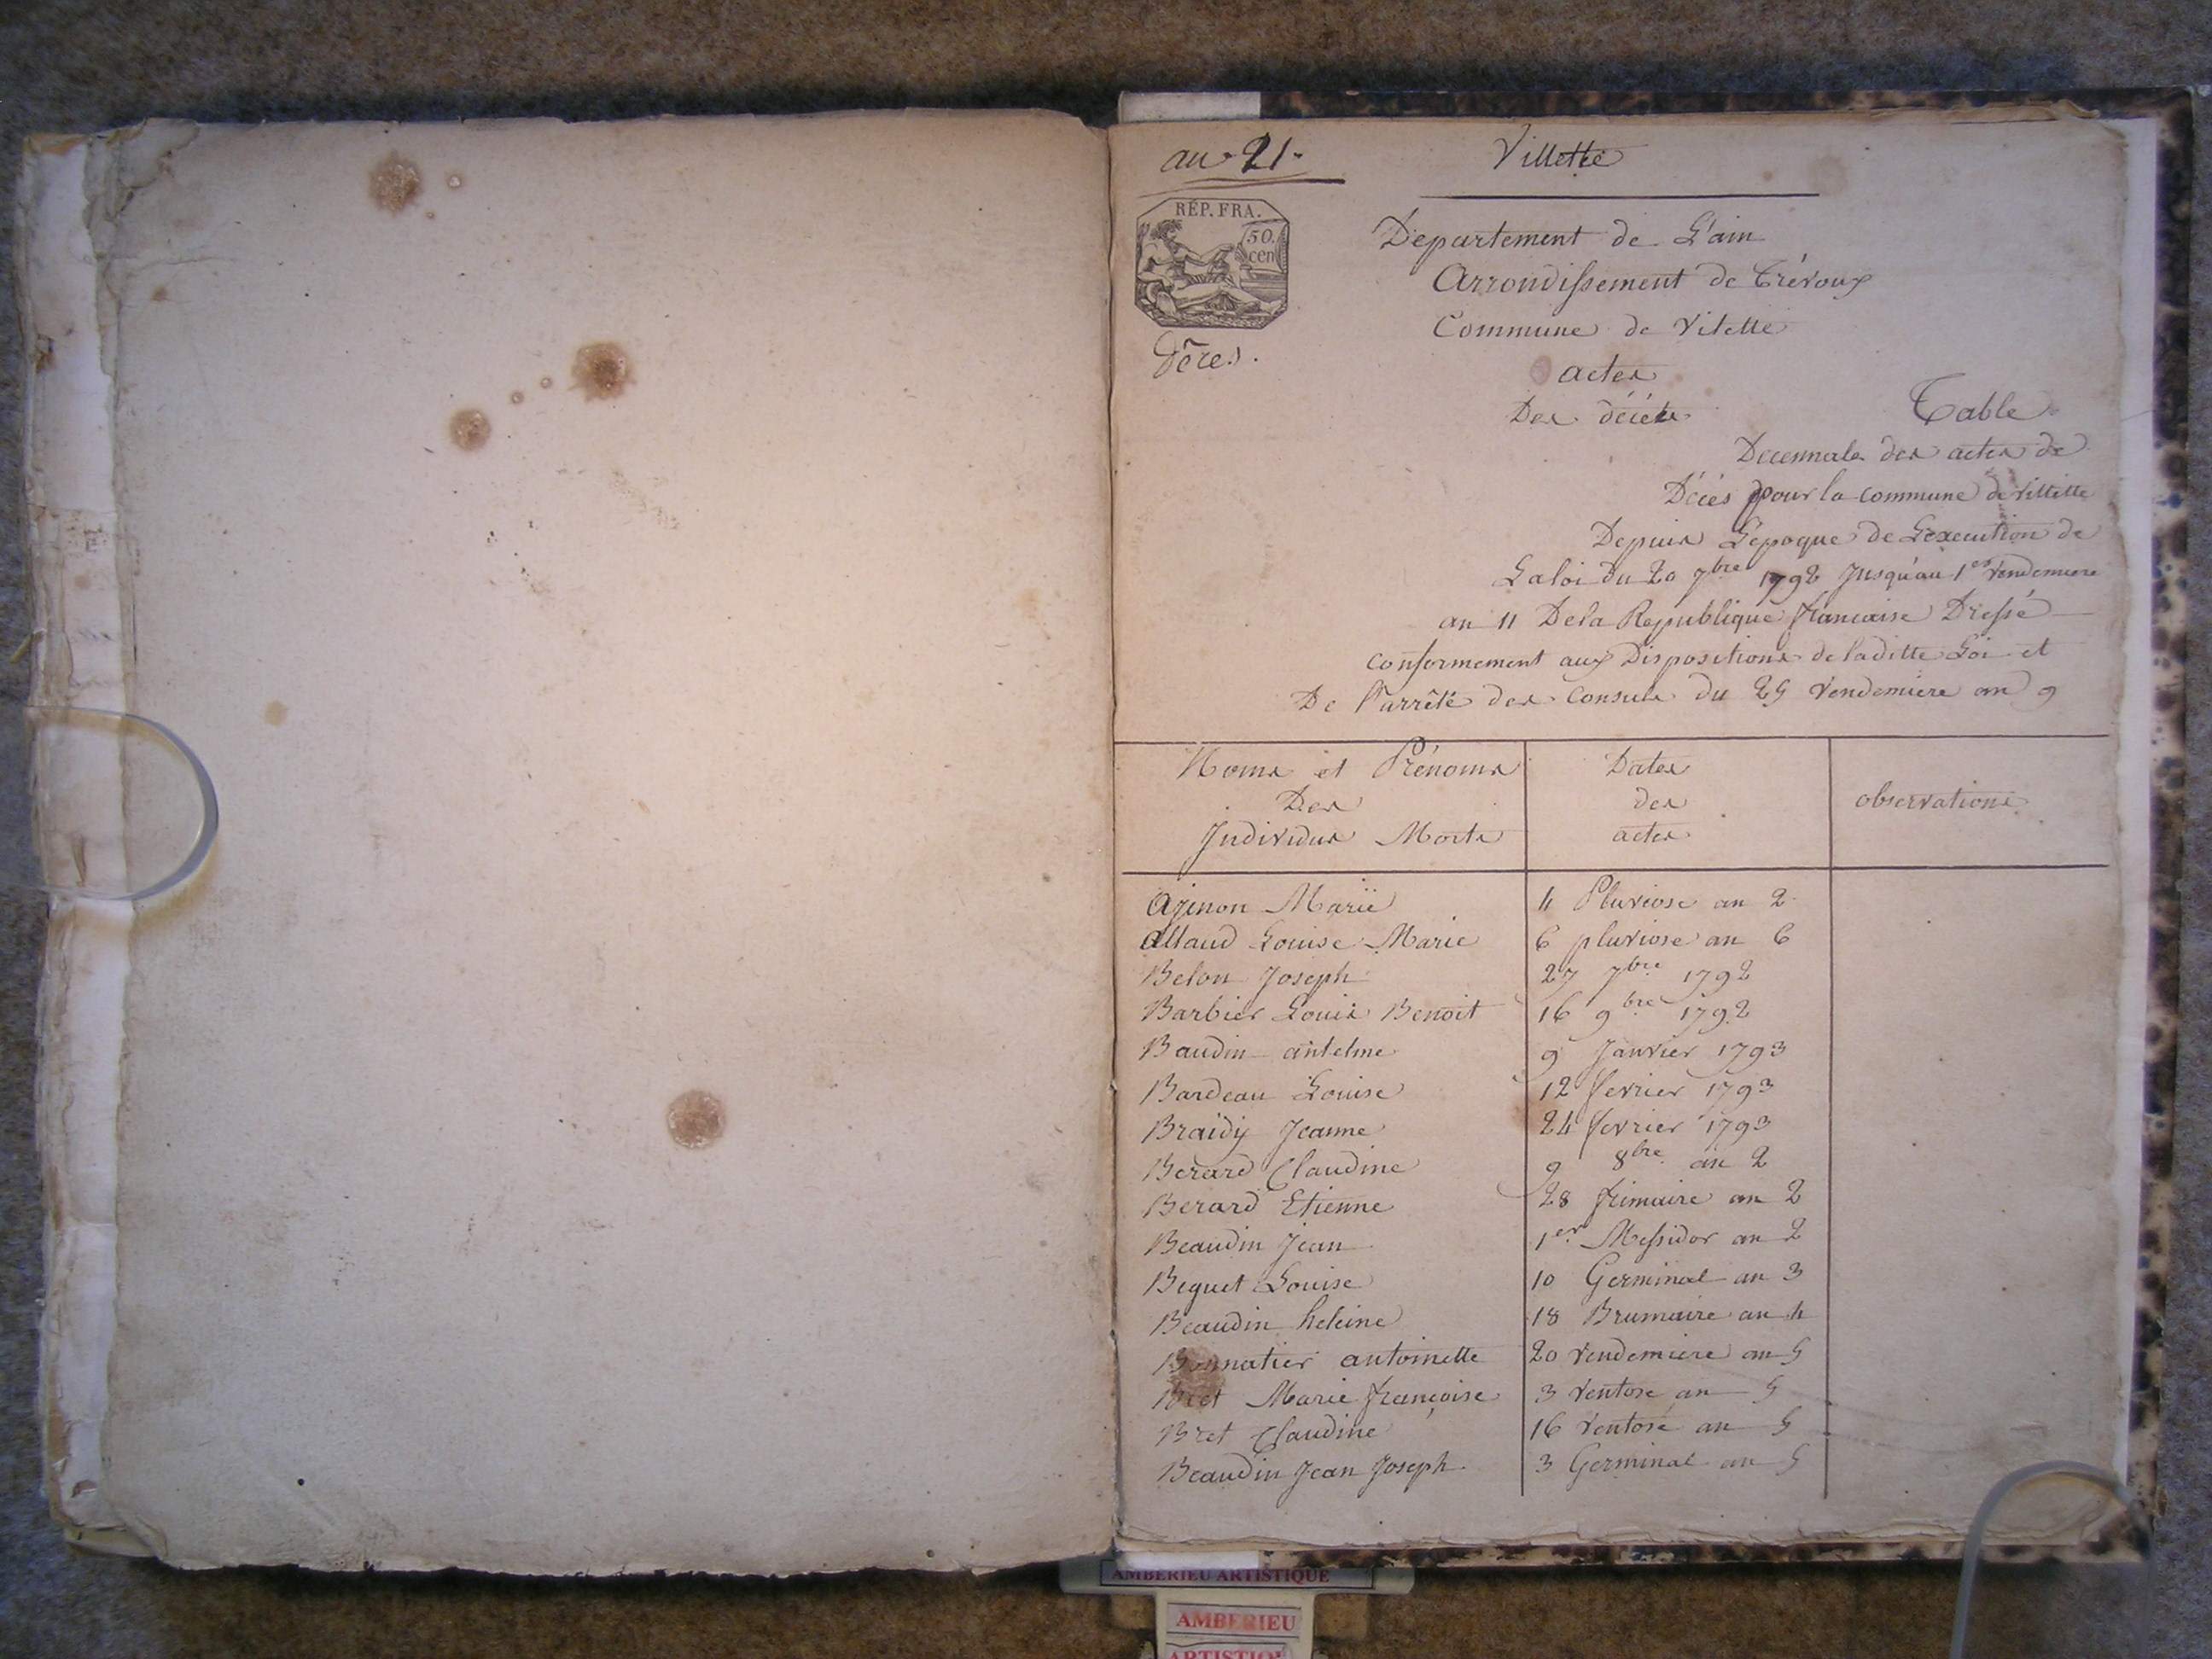 au 21.
Villette
RÉP. FRA.
50.
cen
Departement de L'ain
Arrondissement de Trévoux
Commune de Vilette
actes
Des décéts
Table
Decennale des actes de
Décés pour la commune de Villette
Depuis L'époque de L'execution de
La loi du 20 7bre 1792 Jusqu'au 1er Vendemiere
an 11 De la Republique francaise Dressé
conformement aux Dispositions de laditte Loi et
De l'arrêté des Consuls du 25 Vendemiere an 9
Noms et Prénoms
Des
Individus Morts
Dates
des
actes
observations
Ajinon Marie 4 Pluviose an 2
Allaud Louise Marie 6 pluviose an 6
Belon Joseph 27 7bre 1792
Barbier Louis Benoit 16 9bre 1792
Baudin antelme 9 Janvier 1793
Bardeau Louise 12 fevrier 1793
Braidy Jeanne 24 fevrier 1793
Berard Claudine 2 8bre an 2
Berard Etienne 28 frimaire an 2
Beaudin Jean 1er Messidor an 2
Beguet Louise 10 Germinal an 3
Beaudin heleine 18 Brumaire an 4
Bonnatier antoinette 20 Vendemiere an 5
Bret Marie françoise 3 Ventose an 5
Bret Claudine 16 Ventose an 5
Beaudin Jean Joseph 3 Germinal an 5
AMBERIEU ARTISTIQUE
AMBERIEU
ARTISTIQUE